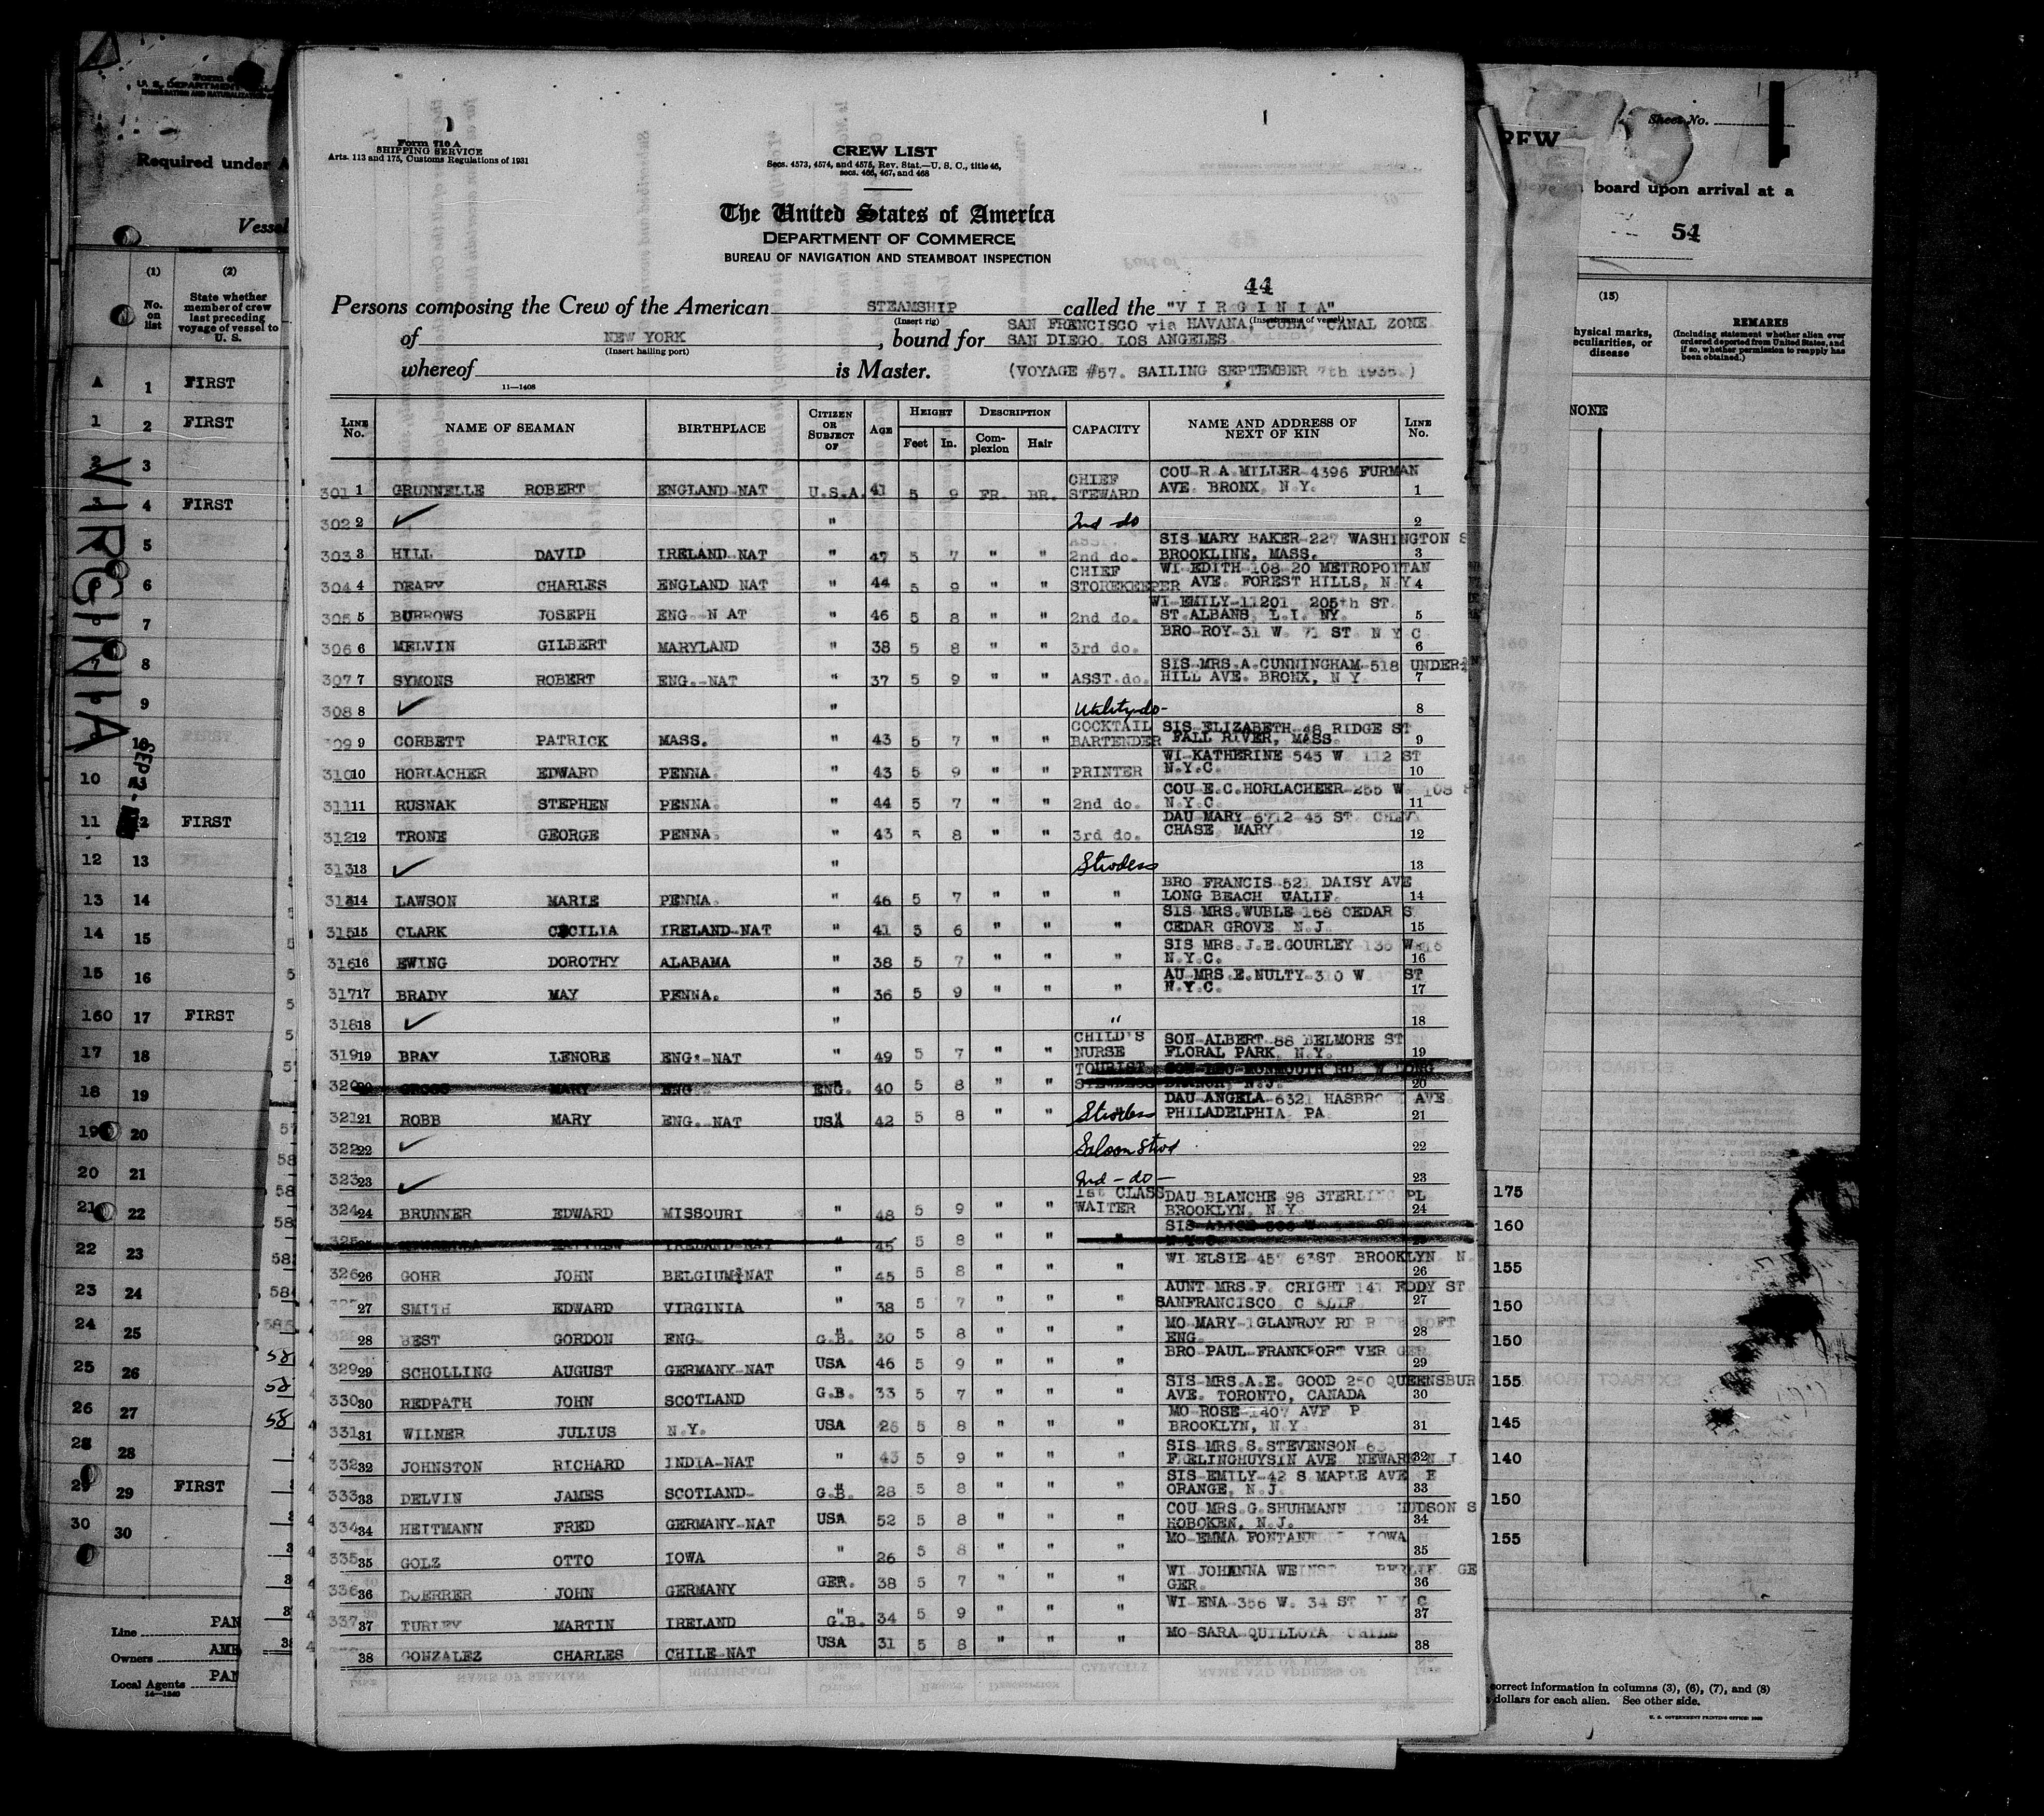 Form 710 A
SHIPPING SERVICE
Arts. 113 and 175, Customs Regulations of 1931
CREW LIST
Secs. 4573, 4574, and 4575, Rev. Stat.—U. S. C., title 46,
secs. 466, 467, and 468
The United States of America
DEPARTMENT OF COMMERCE
BUREAU OF NAVIGATION AND STEAMBOAT INSPECTION
44
Persons composing the Crew of the American STEAMSHIP called the "V I R G I N I A"
(Insert rig) (Insert name of vessel)
of NEW YORK, bound for SAN FRANCISCO via HAVANA, CUBA, CANAL ZONE
SAN DIEGO LOS ANGELES
(Insert hailing port)
whereof is Master. (VOYAGE #57. SAILING SEPTEMBER 7th 1935.)
11—1408
LINE No. NAME OF SEAMAN BIRTHPLACE CITIZEN OR SUBJECT OF AGE HEIGHT Feet In. DESCRIPTION Complexion Hair CAPACITY NAME AND ADDRESS OF NEXT OF KIN LINE No.
301 1 GRUNNELLE ROBERT ENGLAND NAT U.S.A. 41 5 9 FR. BR. CHIEF STEWARD COU R A MILLER 4396 FURMAN AVE. BRONX, N.Y. 1
302 2 ✓ " 2nd do 2
303 3 HILL DAVID IRELAND NAT " 47 5 7 " " ASST. 2nd do. SIS MARY BAKER 227 WASHINGTON S BROOKLINE, MASS. 3
304 4 DEARY CHARLES ENGLAND NAT " 44 5 9 " " CHIEF STOREKEEPER WI EDITH 108-20 METROPOLITAN AVE. FOREST HILLS, N Y 4
305 5 BURROWS JOSEPH ENG. N AT " 46 5 8 " " 2nd do. WI EMILY-11201 205th ST. ST.ALBANS, L.I. NY. 5
306 6 MELVIN GILBERT MARYLAND " 38 5 8 " " 3rd do. BRO ROY-31 W. 71 ST. N Y C 6
307 7 SYMONS ROBERT ENG.-NAT " 37 5 9 " " ASST.do. SIS MRS.A.CUNNINGHAM 518 UNDER HILL AVE. BRONX, N Y 7
308 8 ✓ " Utility do - 8
309 9 CORBETT PATRICK MASS. " 43 5 7 " " COCKTAIL BARTENDER SIS ELIZABETH 48 RIDGE ST FALL RIVER, MASS. 9
310 10 HORLACHER EDWARD PENNA. " 43 5 9 " " PRINTER WI KATHERINE 545 W 112 ST N.Y.C. 10
311 11 RUSNAK STEPHEN PENNA. " 44 5 7 " " 2nd do. COU E.C.HORLACHEER 255 W. 108 N.Y.C. 11
312 12 TRONE GEORGE PENNA. " 43 5 8 " " 3rd do. DAU MARY 6712 45 ST. CHEVY CHASE, MARY. 12
313 13 ✓ " Stwdess 13
314 14 LAWSON MARIE PENNA. " 46 5 7 " " " BRO FRANCIS 521 DAISY AVE LONG BEACH CALIF. 14
315 15 CLARK CECILIA IRELAND-NAT " 41 5 6 " " " SIS MRS.WUBLE 168 CEDAR S CEDAR GROVE N.J. 15
316 16 EWING DOROTHY ALABAMA " 38 5 7 " " " SIS MRS.J.E.GOURLEY N.Y.C. 16
317 17 BRADY MAY PENNA. " 36 5 9 " " " AU MRS.E.NULTY-310 W ST N.Y.C. 17
318 18 ✓ " " 18
319 19 BRAY LENORE ENG.-NAT " 49 5 7 " " CHILD'S NURSE SON-ALBERT 88 BELMORE ST FLORAL PARK, N.Y. 19
320 20 GROSS MARY ENG. ENG. 40 5 8 " " TOURIST STEWDESS SON LEO MONMOUTH RD. W LONG BRANCH, N.J. 20
321 21 ROBB MARY ENG. NAT USA 42 5 8 " " Stwdess DAU ANGELA 6321 AVE. PHILADELPHIA PA 21
322 22 ✓ Saloon Stwd 22
323 23 ✓ 2nd - do - 23
324 24 BRUNNER EDWARD MISSOURI " 48 5 9 " " 1st CLASS WAITER DAU BLANCHE 98 STERLING PL BROOKLYN, N.Y. 24
325 MATTHEW IRELAND-NAT " 45 5 8 " " " SIS ALICE N.Y.C.
326 26 GOHR JOHN BELGIUM NAT " 45 5 8 " " " WI ELSIE 457 63ST. BROOKLYN N. 26
27 SMITH EDWARD VIRGINIA " 38 5 7 " " " AUNT MRS.F. CRIGHT 141 EDDY ST SANFRANCISCO C ALIF. 27
28 BEST GORDON ENG. G.B. 30 5 8 " " " MO MARY-1GLANROY RD ENG. 28
329 29 SCHOLLING AUGUST GERMANY-NAT USA 46 5 9 " " " BRO PAUL FRANKFORT VER GER 29
330 30 REDPATH JOHN SCOTLAND G.B. 33 5 7 " " " SIS-MRS.A.E. GOOD 250 QUEENSBUR AVE. TORONTO, CANADA 30
331 31 WILNER JULIUS N.Y. USA 26 5 8 " " " MO ROSE-1407 AVE P BROOKLYN, N.Y. 31
332 32 JOHNSTON RICHARD INDIA-NAT " 43 5 9 " " " SIS MRS.S.STEVENSON FRELINGHUYSIN AVE NEWARK N J 32
333 33 DELVIN JAMES SCOTLAND- G.B. 28 5 8 " " " SIS EMILY-42 S MAPLE AVE E ORANGE, N.J. 33
334 34 HEITMANN FRED GERMANY-NAT USA 52 5 8 " " " COU MRS.G.SHUHMANN HUDSON S HOBOKEN, N.J. 34
335 35 GOLZ OTTO IOWA " 26 5 8 " " " MO-EMMA IOWA 35
336 36 DOERRER JOHN GERMANY GER. 38 5 7 " " " WI JOHANNA BERLIN GE GER. 36
337 37 TURLEY MARTIN IRELAND " G.B. 34 5 9 " " " WI ENA 356 W. 34 ST N Y C 37
38 GONZALEZ CHARLES CHILE-NAT USA 31 5 8 " " " MO SARA QUILLOTA CHILE 38
Required under A
Vessel
(1) (2)
No. on list
State whether member of crew last preceding voyage of vessel to U. S.
1 FIRST
1 2 FIRST
2 3
4 FIRST
5
6
7
7 8
9
10
11 FIRST
12 13
13 14
14 15
15 16
160 17 FIRST
17 18
18 19
19 20
20 21
21 22
22 23
23 24
24 25
25 26
26 27
28 28
29 29 FIRST
30 30
VIRGINIA
SEP
Line PAN
Owners AME
Local Agents PAN
14—1240
Sheet No.
REW
board upon arrival at a
54
(15)
hysical marks, peculiarities, or disease
REMARKS
(Including statement whether alien ever ordered deported from United States, and if so, whether permission to reapply has been obtained.)
NONE
175
160
155
150
150
155
145
140
150
155
correct information in columns (3), (6), (7), and (8)
dollars for each alien. See other side.
U. S. GOVERNMENT PRINTING OFFICE